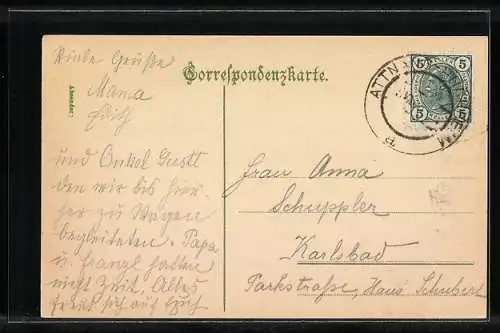 Viele Grüße
Mama
Edith
Correspondenzkarte.
Absender:
und Onkel Gustl
den wir bis hier-
her zu Wagen
begleiteten. Papa
u. Franzl hatten
nicht Zeit. Alles
freut sich auf Euch
5 5
5 5
ATTN
Frau Anna
Schuppler
Karlsbad
Parkstraße, Haus Schubert